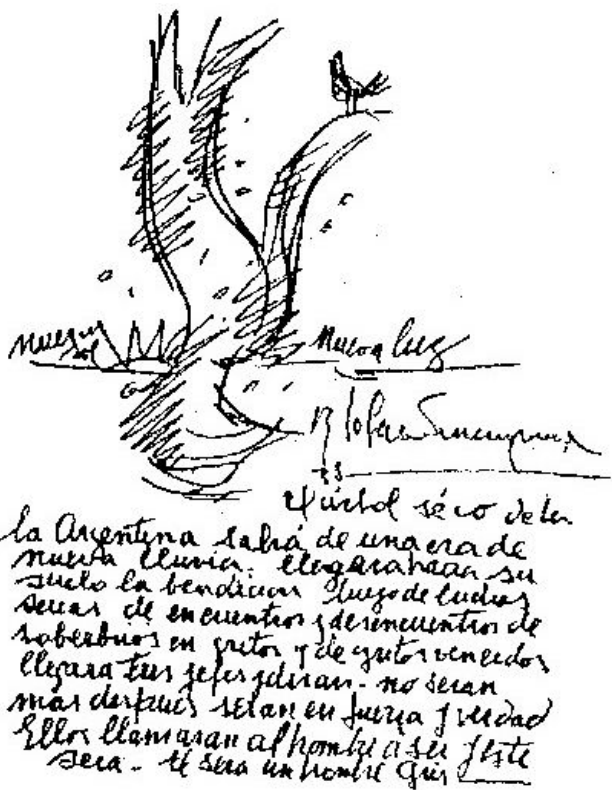 nuevo sol
nueva luz
B Solari Parravicini
El arbol seco de la
la Argentina sabrá de una era de
nueva lluvia. llegara hacia su
suelo la bendicion luego de luchas
serias de encuentros y desencuentros de
soberbios en gritos y de gritos vencidos
llegara tres jefes y diran - no seran
mas despues seran en fuerza y verdad
Ellos llamaran al hombre a ser y este
sera - El sera un hombre gris